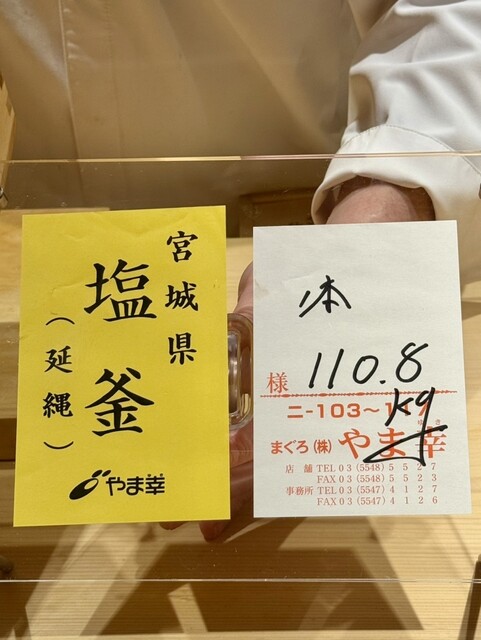 宮城県
塩釜
（延縄）
やま幸
本
様 110.8
kg
ニ-103～117
まぐろ(株) やま幸
店舗 TEL 03(5548)5527
FAX 03(5548)5523
事務所 TEL 03(5547)4127
FAX 03(5547)4126